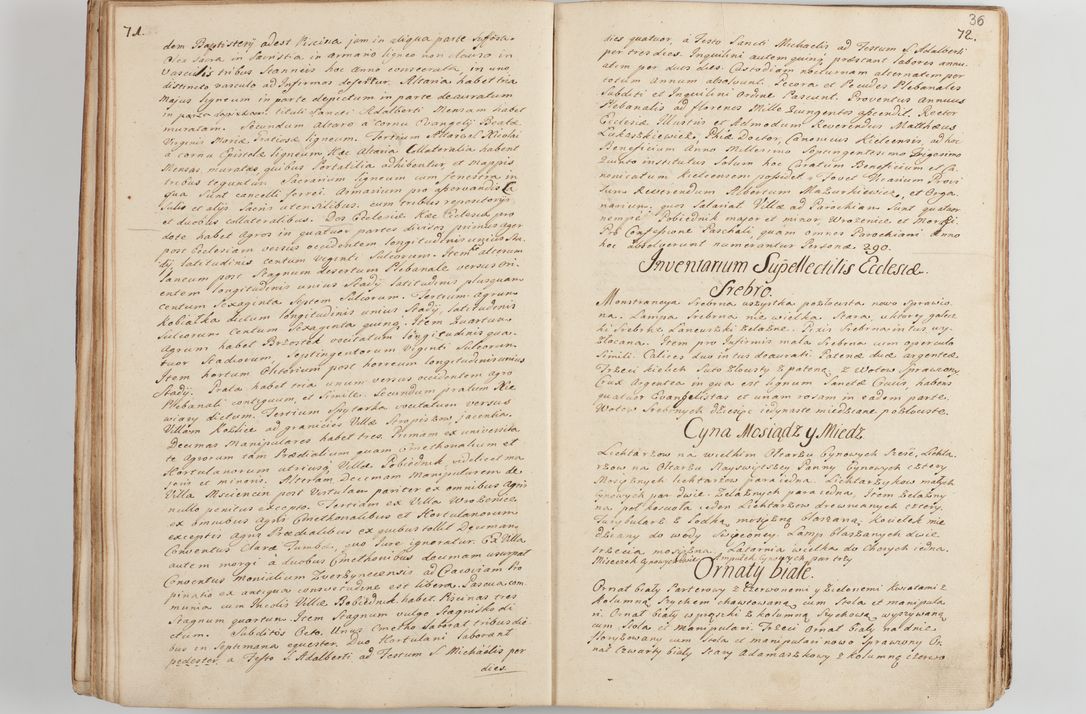 71.
dem Baptisterij adest Piscina jam in aliqua parte suffossa.
Olea Sacra in Sacristia in armario ligneo non clauso in
Vasculis tribus Stanneis hoc anno consecrata, in uno
distincto vasculo ad Infirmos defertur. Altaria habet tria
Majus ligneum in parte depictum in parte deauratum
in parte depictum, tituli Sancti Adalberti Mensam habet
muratam. Secundum altare à cornu Evangelij Beatæ
Virginis Mariæ Gratiosæ ligneum. Tertium Altare S. Nicolai
à cornu Epistolæ ligneum. Hæc Altaria Collateralia habent
Mensas muratas, quibus Portatilia adhibentur, et mappis
tribus teguntur. Sacrarium ligneum cum fenestra in
qua sunt cancelli ferrei. Armarium pro asservandis
et alijs Sacris utensilibus, cum tribus repositorijs
et duobus collateralibus. Dos Ecclesiæ Hæc Ecclesia pro
dote habet agros in quatuor partes divisos primus ager
post Ecclesiam versus occidentem longitudinis unius Sta-
dij, latitudinis centum viginti Sulcorum. Item alterum
laneum post Stagnum desertum Plebanale versus Ori-
entem longitudinis unius Stadij latitudinis plusquam
centum Sexaginta Septem Sulcorum. Tertium agrum
Kobiałka dictum longitudinis unius Stadij, latitudinis
Sulcorum Centum Sexaginta quinq. Item Quartum
Agrum habet Brzostek vocitatum longitudinis qua-
tuor Stadiorum, Septingentorum viginti Sulcorum.
Item hortum Olitorium post horreum longitudinis unius
Stadij. Prata habet tria unum versus occidentem agro
Plebanali contiguum, et simile. Secundum pratum Nie-
wiary dictum. Tertium Spytarka vocitatum versus
Villam Kozlice ad granicies Villæ Stropieszow jacentia.
Decimas Manipulares habet tres. Primam ex universita-
te agrorum tam Prædialium quam Cmethonalium et
Hortulanorum utriusq. Villæ Pobiednik, videlicet ma-
joris et minoris. Alteram Decimam Manipularem de
Villa Msciencin post Vistulam pariter ex omnibus agris
nullo penitus excepto. Tertiam ex Villa Wrożenice
ex omnibus agris Cmethonalibus et Hortulanorum
exceptis agris Prædialibus ex quibus tollit Decimam
Conventus Claræ Tumbæ, quo Jure ignoratur. Ex Villa
autem morgi à duobus Cmethonibus decimam usurpat
Conventus Monialium Zverzynecensis ad Cracoviam Pro-
pinatio ex antiqua consvetudine est libera. Pascua com-
munia cum Incolis Villæ Pobiednik habet. Piscinas tres
Stagnum quartum. Item Stagnum vulgo Stagnisko di-
ctum. Subditos Octo. Unus Cmetho laborat tribus die-
bus in Septimana equester. Duo Hortulani laborant
pedester, a Festo S. Adalberti ad Festum S. Michaëlis per
dies.
36
72.
dies quatuor, à Festo Sancti Michaelis ad Festum S. Adalberti
per tres dies. Inquilini autem quinq. præstant labores annu-
atim per duos dies. Custodiam nocturnam alternatim per
totum annum absolvunt. Pecora et Pecudes Plebanales
Subditi et Inquilini Ordine Pascunt. Proventus annuus
Plebanalis ad florenos Mille Ducentos ascendit. Rector
Ecclesiæ Illustris et Admodum Reverendus Matthæus
Lukaszkiewicz, Philæ Doctor, Canonicus Kielcensis, ad hoc
Beneficium Anno Millesimo Septingentesimo Trigesimo
Quinto institutus Solum hoc Curatum Beneficium et Ca-
nonicatum Kielcensem possidet. Fovet Vicarium Provi-
sum Reverendum Albertum Mazurkiewicz, et Orga-
narium, quos Salariat Villæ ad Parochiam Sunt quatuor
nempe Pobiednik major et minor, Wrożenice et Morgi.
Pro Confessione Paschali, quam omnes Parochiani Anno
hoc absolverunt numerantur Personæ 290.
Inventarium Supellectilis Ecclesiæ.
Srebro.
Monstrancya Srebrna wszystka pozłocista nowo Sprawio-
na. Lampa Srebrna nie wielka Stara, u ktorey gałecz-
ki Srebrne Łancuszki żelazne. Pixis Srebrna intus wy-
złacana. Item pro Infirmis mała Srebrna cum operculo
Simili. Calices duo intus deaurati, Patenæ duæ argenteæ.
Trzeci kielich Suto złoisty z pateną, z Wotow sprawiony
Crux Argentea in qua est lignum Sanctæ Crucis, habens
quatuor Evangelistas et unam rosam in eadem parte.
Wotow Srebrnych dziesięc jedynaste miedziane pozłociste.
Cyna Mosiądz y Miedz
Lichtarzow na wielkim Ołtarzu Cynowych Sześć, Lichta-
rzow na Ołtarzu Nayswiętszey Panny Cynowych cztery
Mosiężnych lichtarzow para iedna. Lichtarzykow małych
Cynowych par dwie. Zelaznych para iedna, Item żelazny
na puł koscioła ieden Lichtarzow drewnianych cztery.
Turybularz z łodką mosiężną blaszaną. Kociełek mie-
dziany do wody Swięconey. Lamp blaszanych dwie
trzecia mosiężna. Latarnia wielka do Chorych iedna.
Miseczek Cynowych dwie Ampułek Cynowych par trzy
Ornaty białe.
Ornat biały Parterowy z Czerwonemi y Zielonemi Kwiatami z
Kolumną Sychem chawtowaną cum Stola et manipula-
ri. Ornat biały w prążki z kolumną Sychową wyszywaną
cum Stola et manipulari. Trzeci Ornat biały na dnie
Haryzowany cum Stola et manipulari nowo Sprawiony Or-
nat Czwarty biały Stary Adamaszkowy z Kolumną czerwo-